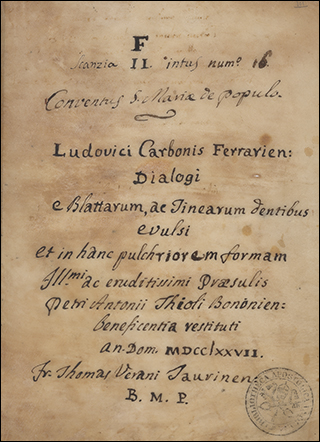 F
Scanzia II. intus num.º 16.
Conventus S. Mariæ de populo.
Ludovici Carbonis Ferrarien:
Dialogi
e Blattarum, ac Tinearum dentibus
evulsi
et in hanc pulchriorem formam
Illmi ac eruditissimi Præsulis
Petri Antonii Thioli Bononien:
beneficentia restituti
an. Dom. MDCCLXXVII.
Fr. Thomas Verani Taurinen:
B. M. P.